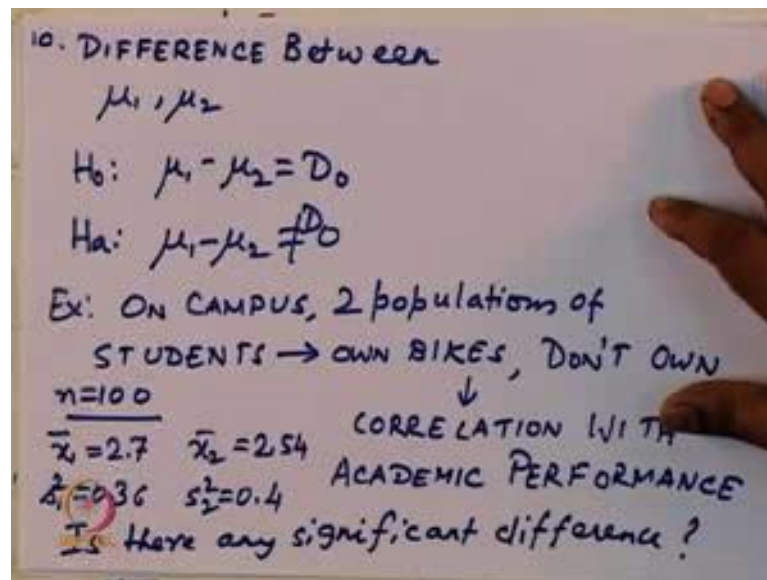 10. DIFFERENCE Between
μ₁, μ₂
H₀: μ₁ - μ₂ = D₀
Ha: μ₁ - μ₂ ≠ D₀
Ex: ON CAMPUS, 2 populations of
STUDENTS → OWN BIKES, DON'T OWN
n=100 ↓
CORRELATION WITH
x̄₁ = 2.7 x̄₂ = 2.54
ACADEMIC PERFORMANCE
s₁² = 0.36 s₂² = 0.4
Is there any significant difference?